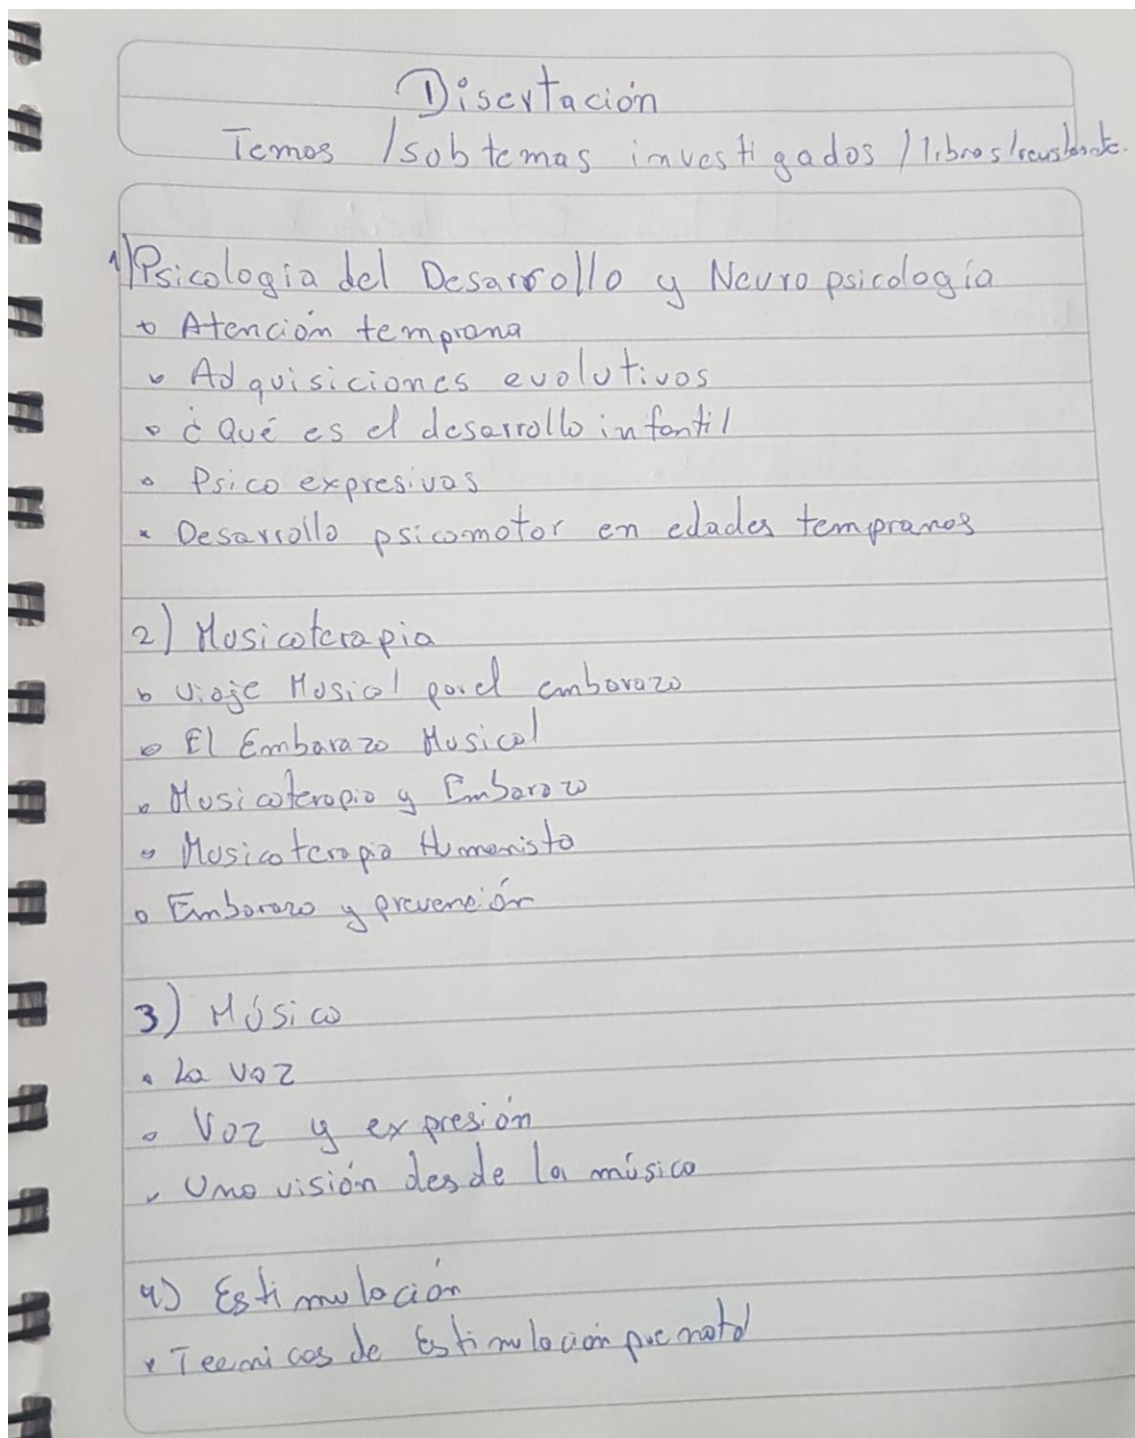 Disertación
Temas / subtemas investigados / libros/revistas/etc.
1) Psicologia del Desarrollo y Neuropsicología
• Atención temprana
• Adquisiciones evolutivas
• ¿Qué es el desarrollo infantil
• Psico expresivas
• Desarrollo psicomotor en edades tempranas
2) Musicoterapia
• Viaje Musical por el embarazo
• El Embarazo Musical
• Musicoterapia y Embarazo
• Musicoterapia Humanista
• Embarazo y prevención
3) Música
• La voz
• Voz y expresión
• Una visión desde la música
4) Estimulación
• Tecnicas de Estimulación prenatal